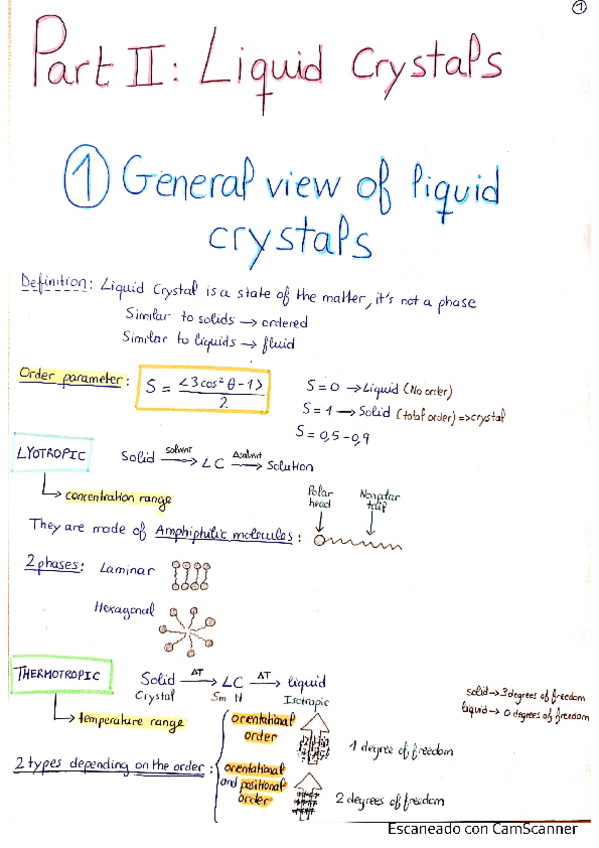 1
Part II: Liquid Crystals
1 General view of liquid
crystals
Definition: Liquid Crystal is a state of the matter, it's not a phase
Similar to solids → ordered
Similar to liquids → fluid
Order parameter: S = <3cos² θ - 1> / 2
S = 0 → Liquid (No order)
S = 1 → Solid (total order) => crystal
S = 0,5 - 0,9
LYOTROPIC
Solid solvent → LC Δsolvent → Solution
↳ concentration range
Polar head
Nonpolar tail
They are made of Amphiphilic molecules:
2 phases: Laminar
Hexagonal
THERMOTROPIC
Solid ΔT → LC ΔT → liquid
Crystal Sm N Isotropic
solid → 3 degrees of freedom
liquid → 0 degrees of freedom
↳ temperature range
orientational order
1 degree of freedom
2 types depending on the order:
orientational and positional order
2 degrees of freedom
Escaneado con CamScanner